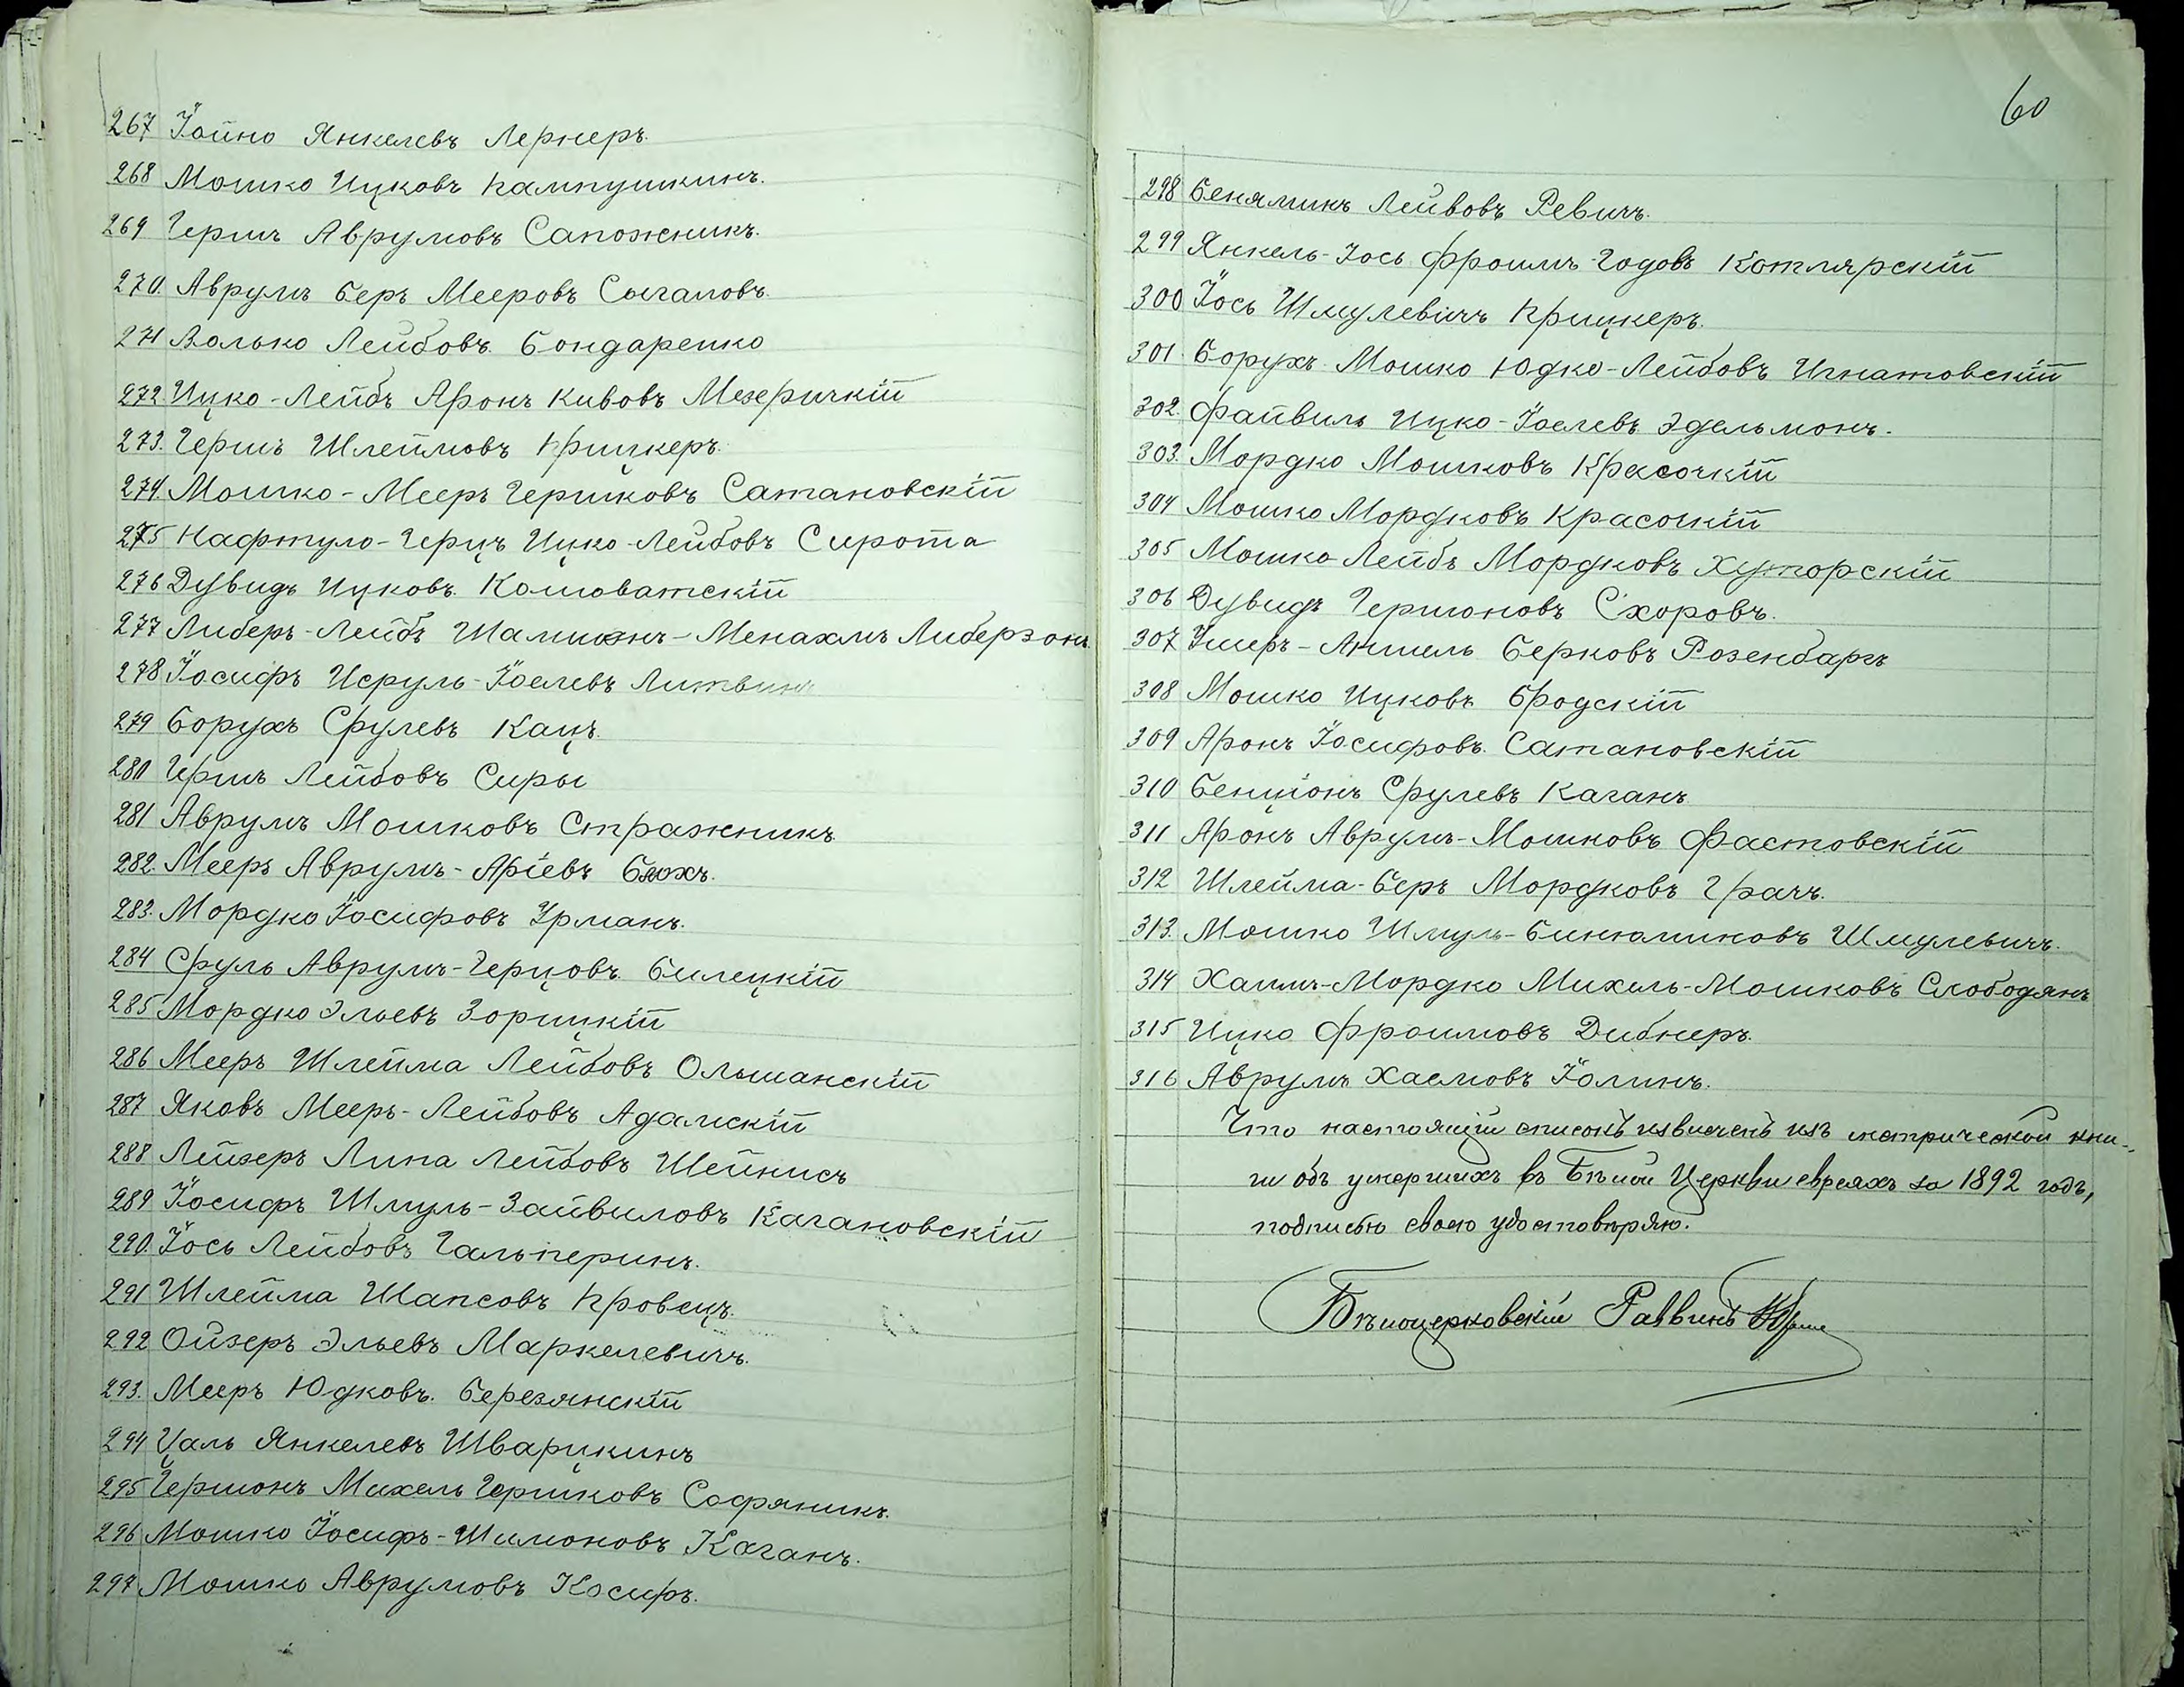 267 Іойно Янкелевъ Лернеръ.
268 Мошко Ицковъ Кампушкинъ.
269 Гершъ Аврумовъ Сапожникъ.
270. Аврумъ Беръ Мееровъ Сыгаловъ.
271 Волько Лейбовъ Бондаренко
272. Ицко-Лейбъ Аронъ Кивовъ Мезеричкій
273. Гершъ Шлеймовъ Крицкеръ.
274. Мошко-Мееръ Гершковъ Сатановскій
275 Нафтуло-Герцъ Ицко Лейбовъ Сирота
276 Дувидъ Ицковъ Кошоватскій
277 Либеръ-Лейбъ Менахмъ Либерзонъ.
278 Іосифъ Исруль-Іоелевъ Литвинъ
279 Борухъ Срулевъ Кацъ.
280 Гершъ Лейбовъ Сиры
281 Аврумъ Мошковъ Стражникъ.
282. Мееръ Аврумъ-Аріевъ Блохъ.
283. Мордко Іосифовъ Урманъ.
284 Сруль Аврумъ-Герцовъ Билецкій
285 Мордко Эльевъ Зорицкій
286 Мееръ Шлейма Лейбовъ Ольшанскій
287 Яковъ Мееръ-Лейбовъ Адамскій
288 Лейзеръ Липа Лейбовъ Шейнисъ
289 Іосифъ Шмуль-Зайвиловъ Кагановскій
290. Іось Лейбовъ Гальперинъ.
291 Шлейма Шапсовъ Кровецъ.
292 Ойзеръ Эльевъ Маркелевичъ.
293. Мееръ Юдковъ. Березянскій
294 Цаль Янкелевъ Шварцкинъ
295 Гершонъ Михель Гершковъ Софяникъ.
296 Мошко Іосифъ-Шимоновъ Каганъ.
297 Мошко Аврумовъ Косиръ.
60
298 Беняминъ Лейвовъ Ревичъ.
299 Янкель-Іось Фроимъ-Годовъ Котлярскій
300 Іось Шмулевичъ Крицкеръ.
301. Борухъ Мошко Юдко-Лейбовъ Игнатовскій
302. Файвиль Ицко-Іоелевъ Эдельмонъ.
303. Мордко Мошковъ Красочкій
304 Мошко Мордковъ Красочкій
305 Мошко Лейбъ Мордковъ Хуторскій
306 Дувидъ Гершоновъ Схоровъ.
307 Ушеръ-Аншель Берковъ Розенбаръ
308 Мошко Ицковъ Бродскій
309 Аронъ Іосифовъ. Сатановскій
310 Бенціонъ Срулевъ Каганъ
311 Аронъ Аврумъ-Мошковъ Фастовскій
312 Шлейма-Беръ Мордковъ Грачъ.
313. Мошко Шмуль-Бинюминовъ Шмулевичъ.
314 Хаимъ-Мордко Михель-Мошковъ Слободянъ
315 Ицко Фроимовъ Дибнеръ.
316 Аврумъ Хаемовъ Іолинъ.
Что настоящій списокъ извлеченъ изъ метрической кни-
ги объ умершихъ въ Бѣлой Церкви евреяхъ за 1892 годъ,
подписью своею удостовѣряю.
Бѣлоцерковскій Раввинъ